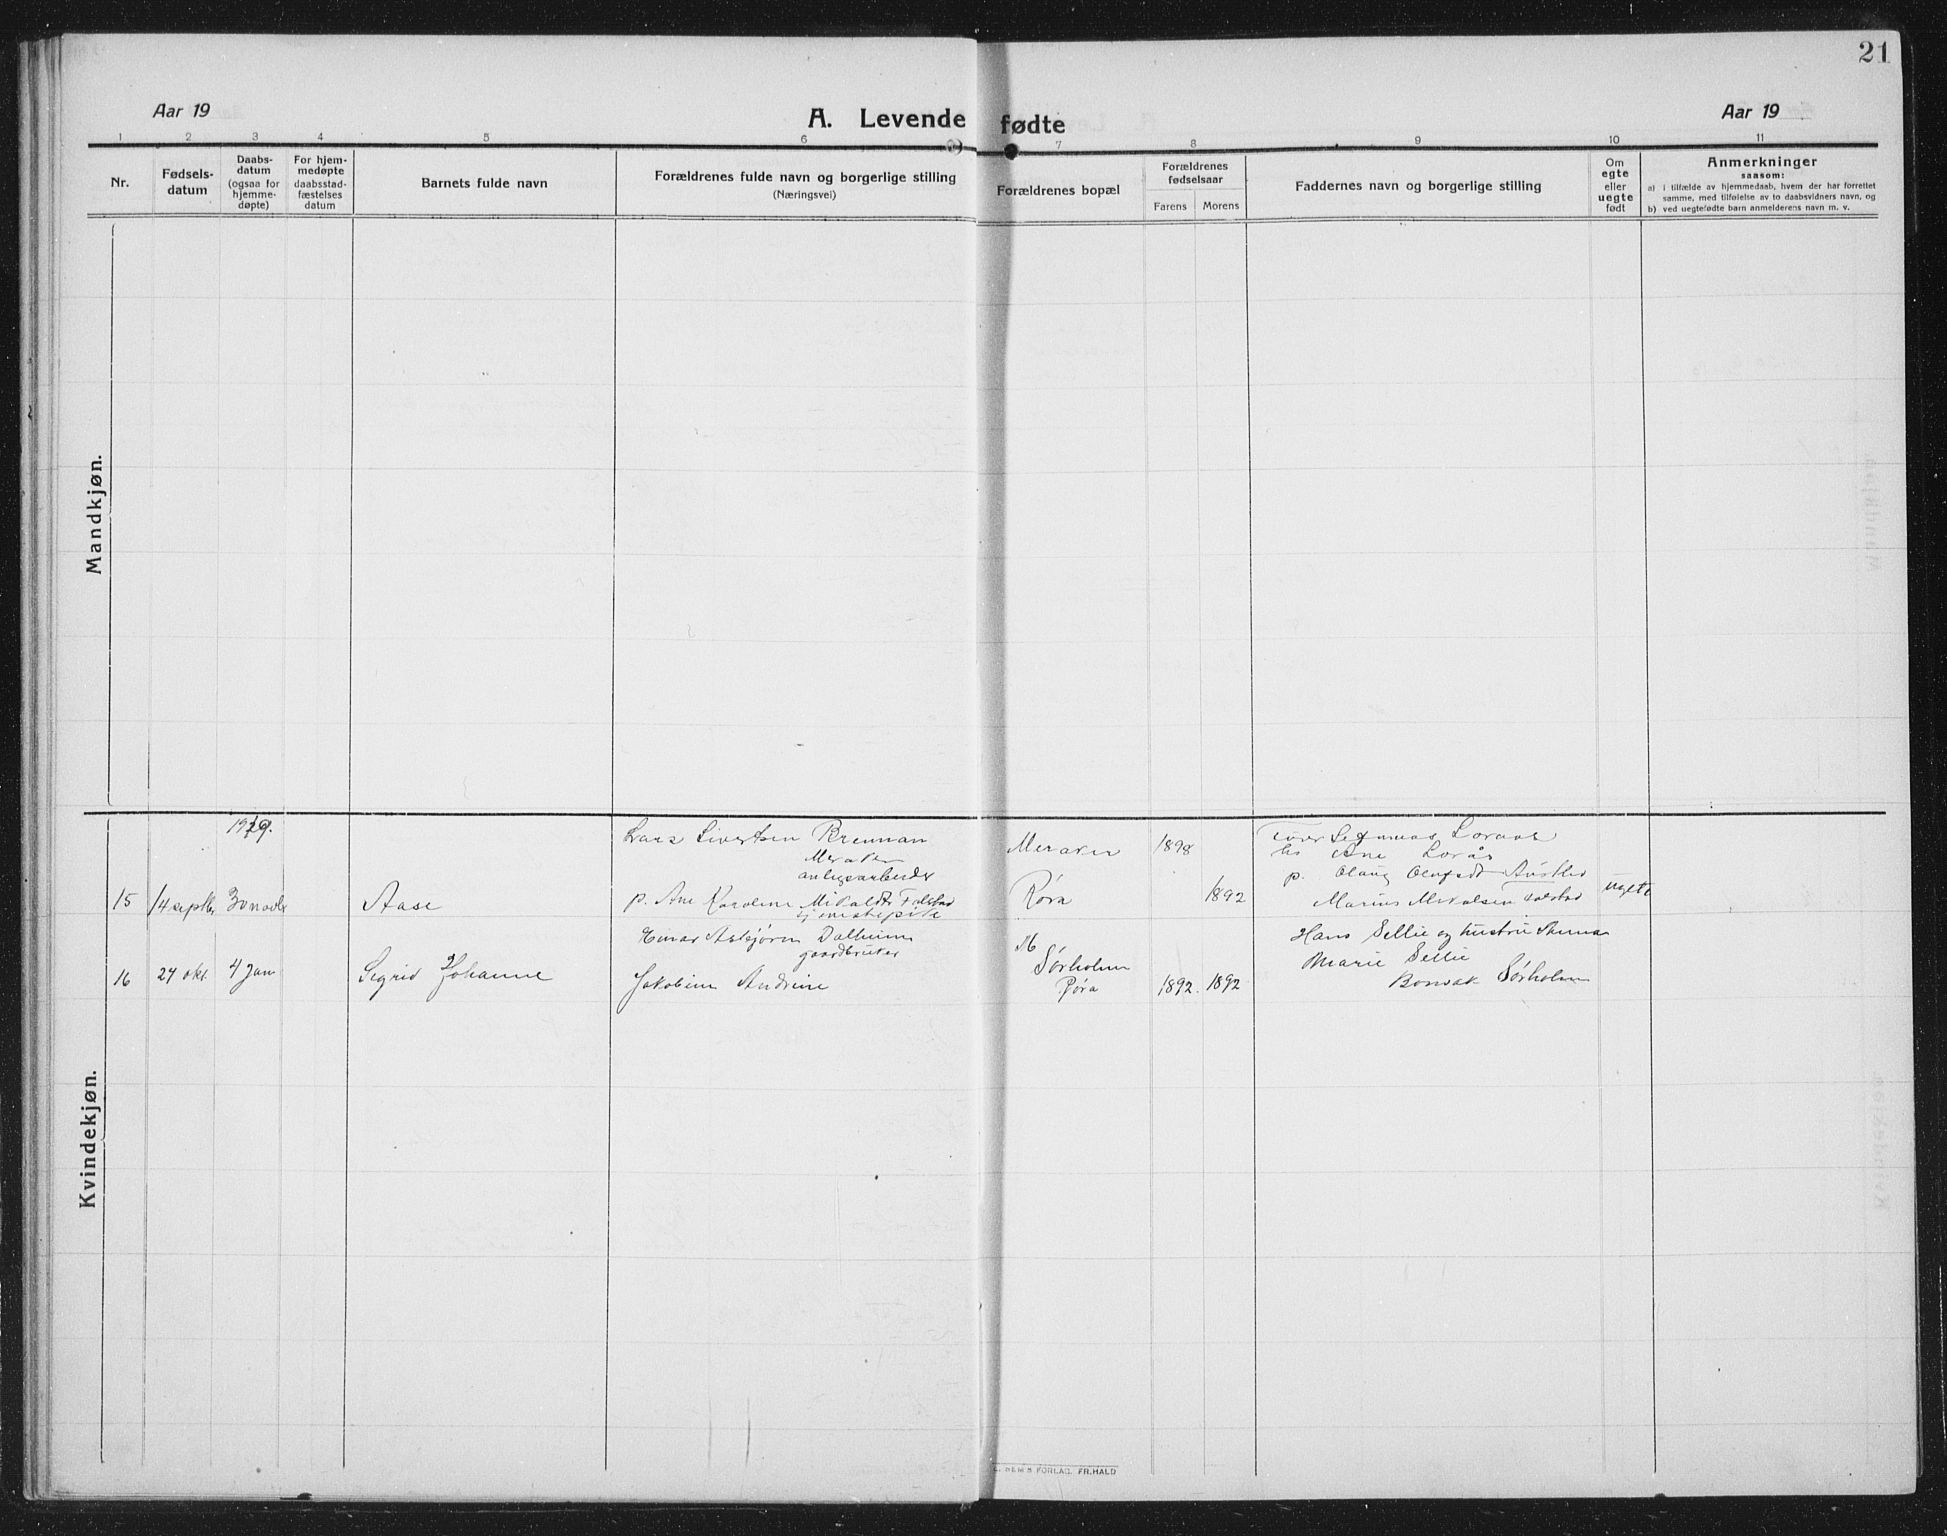 21
Aar 19
A. Levende fødte
Aar 19
1 2 3 4 5 6 7 8 9 10 11
Nr.
Fødsels-
datum
Daabs-
datum
(ogsaa for
hjemme-
døpte)
For hjem-
medøpte
daabsstad-
fæstelses
datum
Barnets fulde navn
Forældrenes fulde navn og borgerlige stilling
(Næringsvei)
Forældrenes bopæl
Forældrenes
fødselsaar
Farens Morens
Faddernes navn og borgerlige stilling
Om
egte
eller
uegte
født
Anmerkninger
saasom:
a) i tilfælde av hjemmedaab, hvem der har forrettet
samme, med tilføielse av to daabsvidners navn, og
b) ved uegtefødte barn anmelderens navn m. v.
Mandkjøn.
Kvindekjøn.
Lars Sivertsen Brennan Meraker 1898
Meraker
anlegsarbeider
Ane Lorås
15 14 septbr 3 novbr Aase p. Ane Karoline Mikalsdt Folstad Røra 1892 Marius Mikalsen Folstad uegte
Einar Asbjørn Dalheim Hans Sellie og hustru
gaardbruker Sørholm Marie Sellie
16 24 okt. 4 Jan Sigrid Johanne Jakobine Andrine Røra 1892. 1892 Sørholm
FORLAG. FR. HALD